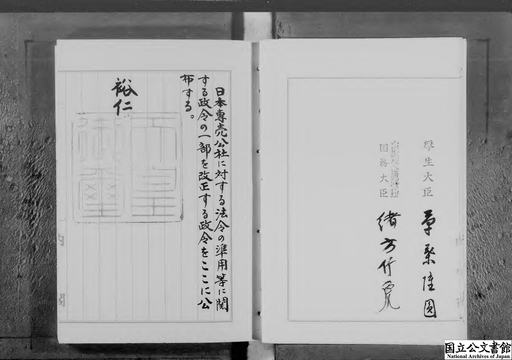 厚生大臣 草葉隆圓
国務大臣 緒方竹虎
日本専売公社に対する法令の準用等に関
する政令の一部を改正する政令をここに公
布する。
裕仁
天皇
御璽
国立公文書館
National Archives of Japan